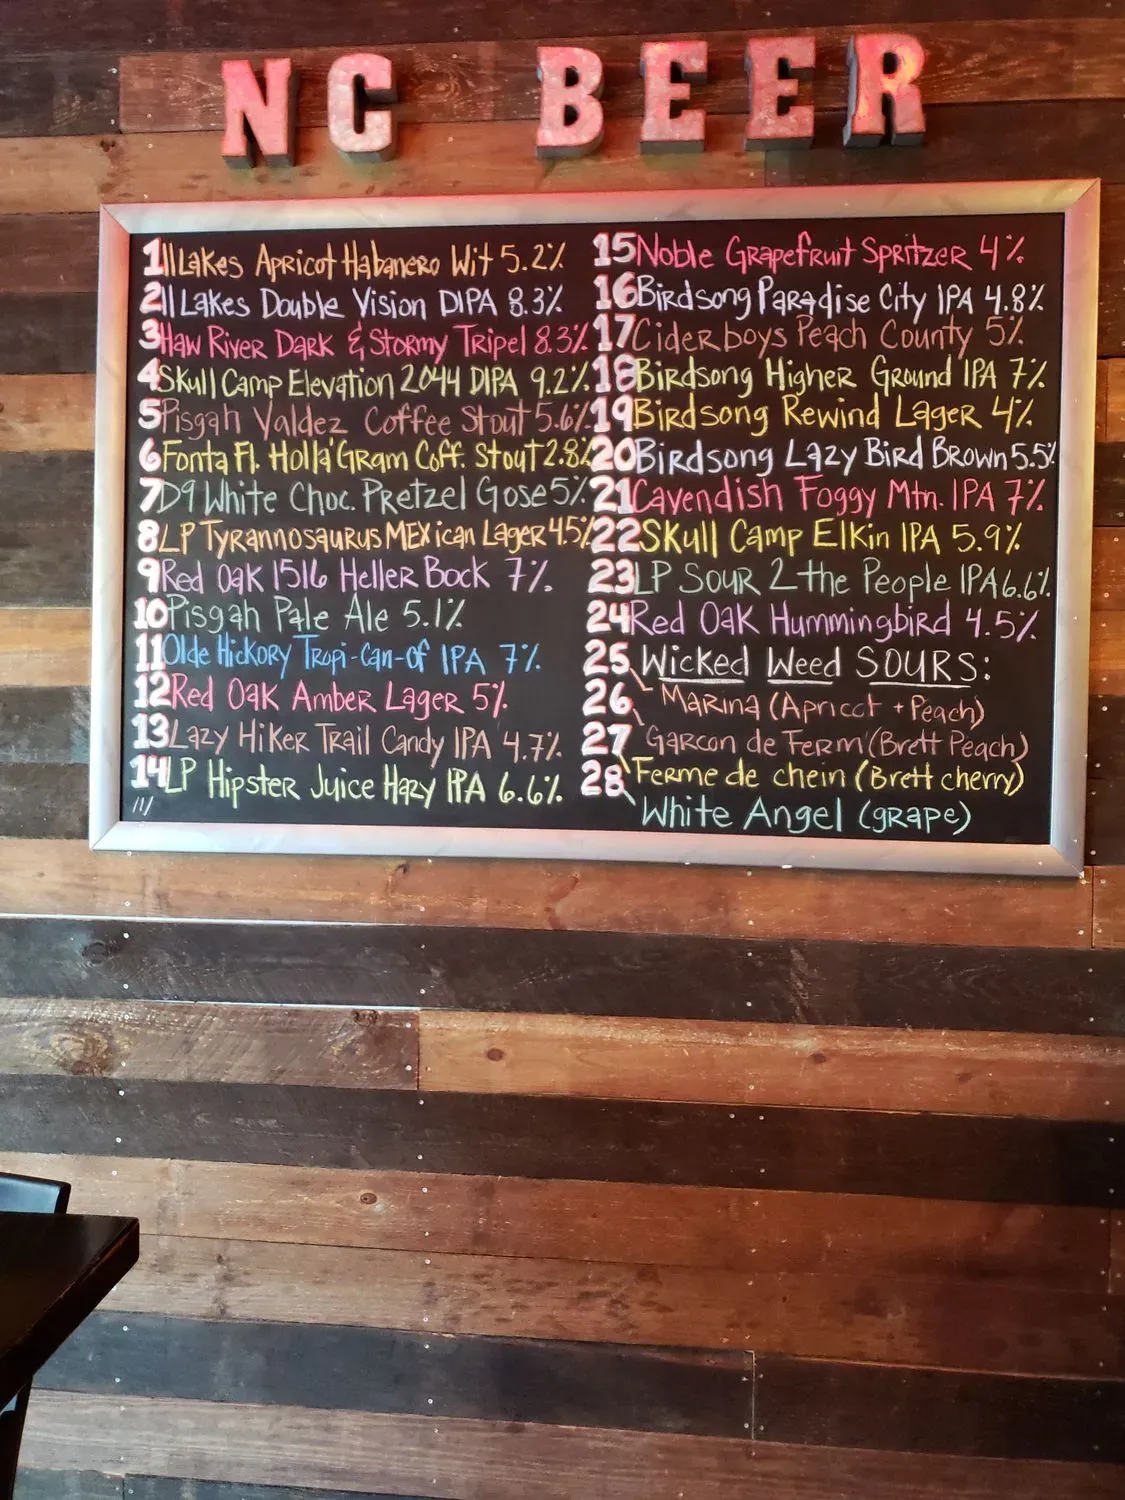 NC BEER
1 11 Lakes Apricot Habanero Wit 5.2%
2 11 Lakes Double Vision DIPA 8.3%
3 Haw River Dark & Stormy Tripel 8.3%
4 Skull Camp Elevation 2044 DIPA 9.2%
5 Pisgah Valdez Coffee Stout 5.6%
6 Fonta Fl. Holla'Gram Coff. Stout 2.8%
7 D9 White Choc. Pretzel Gose 5%
8 LP Tyrannosaurus MEXican Lager 4.5%
9 Red Oak 1516 Heller Bock 7%
10 Pisgah Pale Ale 5.1%
11 Olde Hickory Tropi-Can-of IPA 7%
12 Red Oak Amber Lager 5%
13 Lazy Hiker Trail Candy IPA 4.7%
14 LP Hipster Juice Hazy IPA 6.6%
15 Noble Grapefruit Spritzer 4%
16 Birdsong Paradise City IPA 4.8%
17 Ciderboys Peach County 5%
18 Birdsong Higher Ground IPA 7%
19 Birdsong Rewind Lager 4%
20 Birdsong Lazy Bird Brown 5.5%
21 Cavendish Foggy Mtn. IPA 7%
22 Skull Camp Elkin IPA 5.9%
23 LP Sour 2 the People IPA 6.6%
24 Red Oak Hummingbird 4.5%
25 Wicked Weed SOURS:
26 Marina (Apricot + Peach)
27 Garcon de Ferm (Brett Peach)
28 Ferme de chein (Brett cherry)
White Angel (grape)